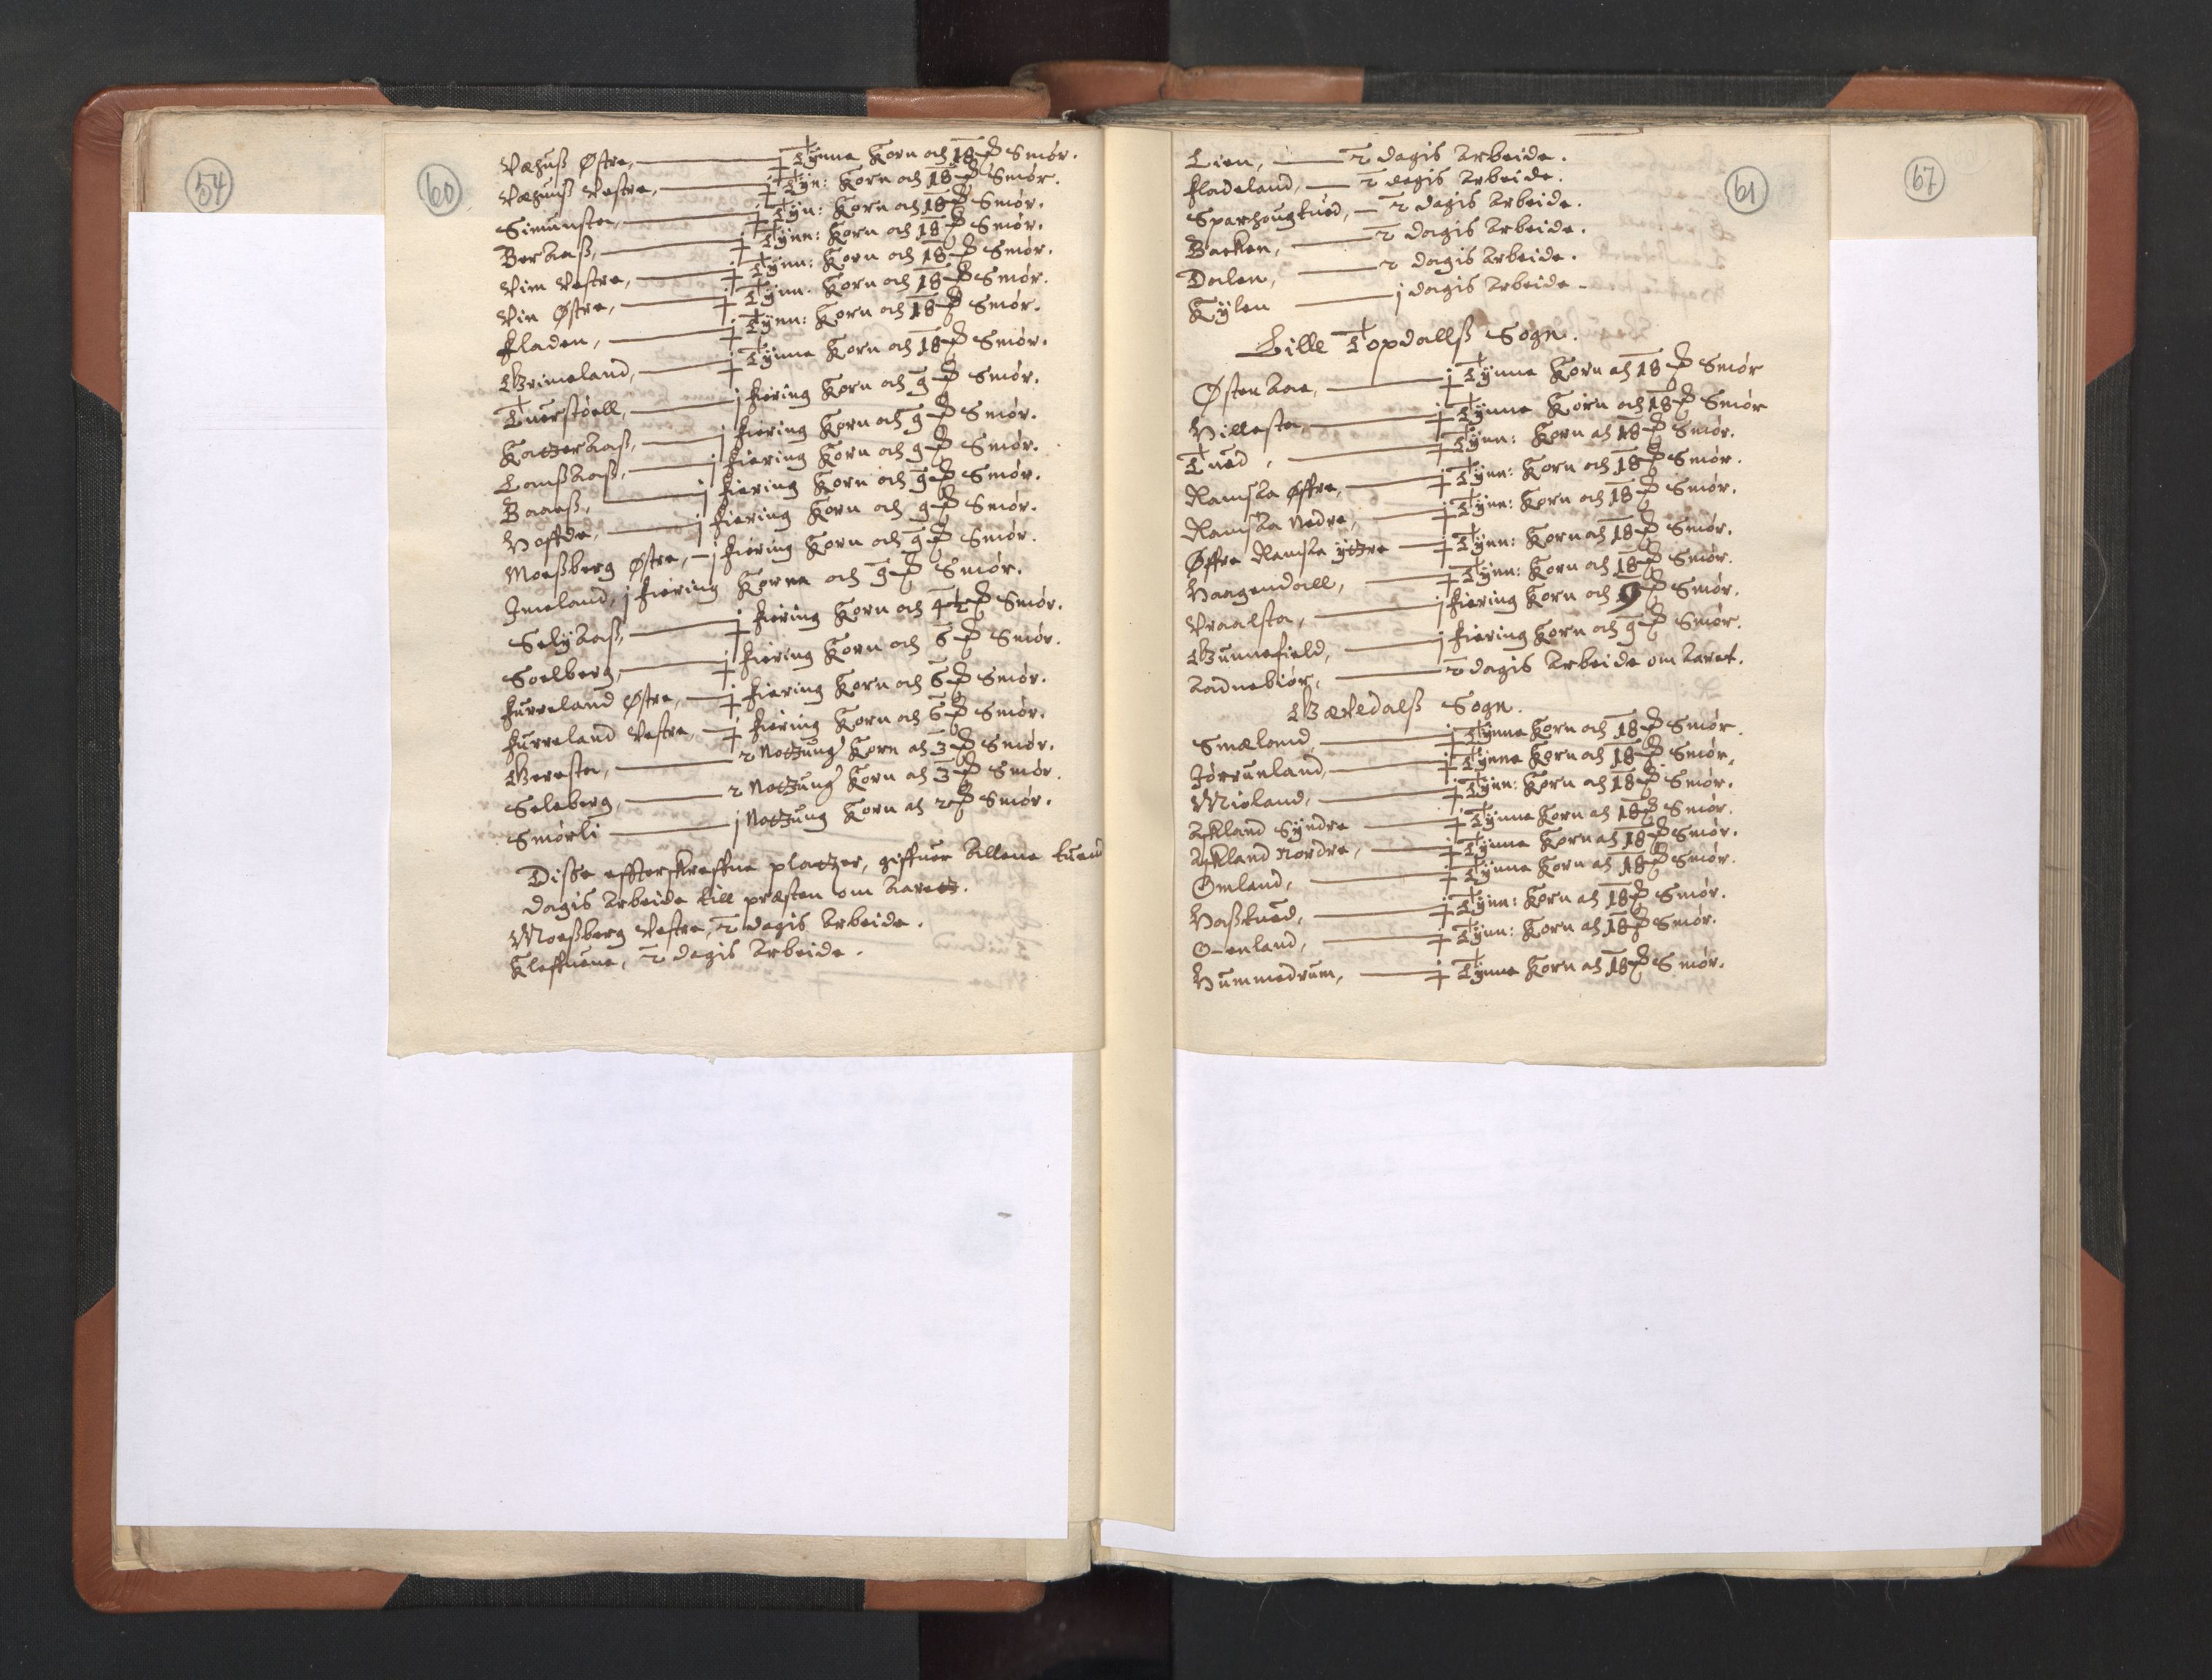 54
60
Væhuß Østre, j Tynne Korn och 18 ℔ Smør.
Væhuuß Vestre, j Tyn: Korn och 18 ℔ Smør.
Simunsten, j Tyn: Korn och 18 ℔ Smør.
Beraaß, j Tynn: Korn och 18 ℔ Smør.
Vim Vestre, j Tynn: Korn och 18 ℔ Smør.
Vin Østre, j Tynn: Korn och 18 ℔ Smør.
fladen, j Tynn: Korn och 18 ℔ Smør.
Grimeland, j Tynne Korn och 18 ℔ Smør.
Tuerstøell, j fiering Korn och 9 ℔ Smør.
Katzeraaß, j fiering Korn och 9 ℔ Smør.
Lanßaaß, j fiering Korn och 9 ℔ Smør.
Baaeß, j fiering Korn och 9 ℔ Smør.
Hoffde, j fiering Korn och 9 ℔ Smør.
Moeßberg Østre, j fiering Korn och 9 ℔ Smør.
Imeland, j fiering Korne och 9 ℔ Smør.
Selyaaß, j fiering Korn och 4½ ℔ Smør.
Soelberg, j fiering Korn och 6 ℔ Smør.
furreland Østre, j fiering Korn och 6 ℔ Smør.
furreland Vestre, j fiering Korn och 6 ℔ Smør.
Geresten, 2 Notzung Korn och 3 ℔ Smør.
Seleberg, 2 Notzung Korn och 3 ℔ Smør.
Smørli j Notzung Korn och 2 ℔ Smør.
Disse effterskreffne platzer, giffuer Allene tuend
dagis Arbeide till præsten om Aaretz.
Moeßberg Vestre, 2 dagis Arbeide.
Kleffuene, 2 dagis Arbeide.
61
67
Lien, 2 dagis Arbeide.
fladeland, 2 dagis Arbeide.
Sparhougtued, 2 dagis Arbeide.
Backen, 2 dagis Arbeide.
Dalen, 2 dagis Arbeide.
Kylen j dagis Arbeide
Lille Topdallß Sogn.
Østenaae, j Tynne Korn och 18 ℔ Smør
Hillesta, j Tynne Korn och 18 ℔ Smør
Tued, j Tynn: Korn och 18 ℔ Smør.
Ramsla Øffre, j Tynn: Korn och 18 ℔ Smør.
Ramsla Nedre, j Tynn: Korn och 18 ℔ Smør.
Øffre Ramsla ytzre j Tynn: Korn och 18 ℔ Smør.
Haagendall, j Tynn: Korn och 18 ℔ Smør.
Vraalsta, j fiering Korn och 9 ℔ Smør.
Gunnefield, j fiering Korn och 9 ℔ Smør.
Aadnebiør, 2 dagis Arbeide om Aaret.
Gævedalß Sogn.
Smæland, j Tynne Korn och 18 ℔ Smør.
Jørrunland, j Tynne Korn och 18 ℔ Smør.
Mioland, j Tynn: Korn och 18 ℔ Smør.
Askland Syndre j Tynne Korn och 18 ℔ Smør.
Askland Nordre, j Tynne Korn och 18 ℔ Smør.
Omland, j Tynne Korn och 18 ℔ Smør.
Haßtued, j Tynn: Korn och 18 ℔ Smør.
O-enland, j Tynn: Korn och 18 ℔ Smør.
Hummedrum, j Tynne Korn och 18 ℔ Smør.